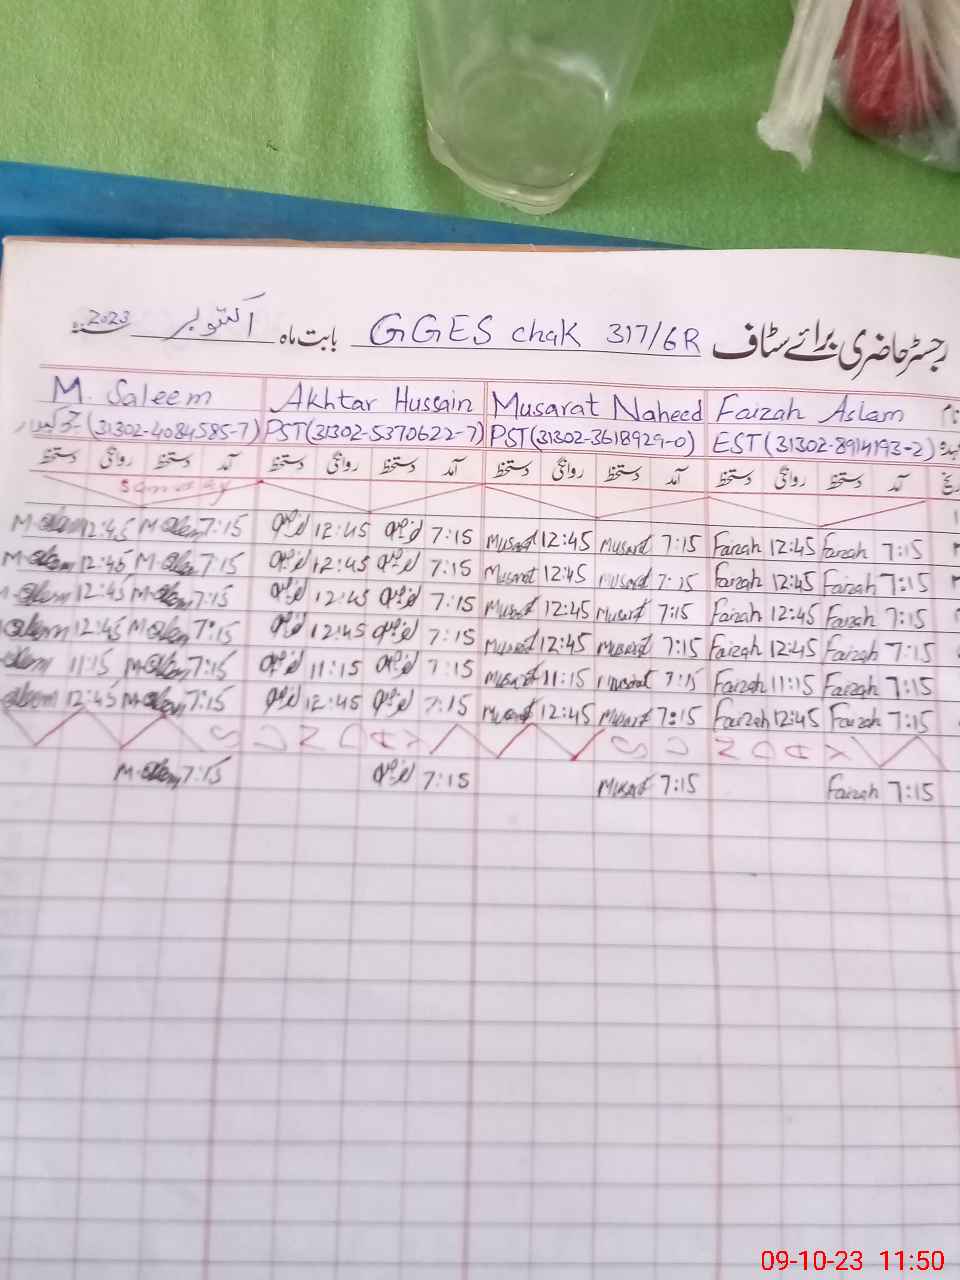 رجسٹر حاضری برائے سٹاف GGES chak 317/6R بابت ماہ اکتوبر 2023ء
نام Faizah Aslam Musarat Naheed Akhtar Hussain M. Saleem
عہدہ EST (31302-8914193-2) PST (31302-3618929-0) PST (31302-5370622-7) (31302-4084585-7)
تاریخ آمد دستخط روانگی دستخط آمد دستخط روانگی دستخط آمد دستخط روانگی دستخط آمد دستخط روانگی دستخط
Sunday
7:15 Faizah 12:45 Faizah 7:15 Musarat 12:45 Musarat 7:15 12:45 7:15 M.Saleem 12:45 M.Saleem
7:15 Faizah 12:45 Faizah 7:15 Musarat 12:45 Musarat 7:15 12:45 7:15 M.Saleem 12:45 M.Saleem
7:15 Faizah 12:45 Faizah 7:15 Musarat 12:45 Musarat 7:15 12:45 7:15 M.Saleem 12:45 Saleem
7:15 Faizah 12:45 Faizah 7:15 Musarat 12:45 Musarat 7:15 12:45 7:15 M.Saleem 12:45 Saleem
7:15 Faizah 11:15 Faizah 7:15 Musarat 11:15 Musarat 7:15 11:15 7:15 M.Saleem 11:15 Saleem
7:15 Faizah 12:45 Faizah 7:15 Musarat 12:45 Musarat 7:15 12:45 7:15 M.Saleem 12:45 Saleem
SUNDAY SUNDAY
7:15 Faizah 7:15 Musarat 7:15 7:15 M.Saleem
09-10-23 11:50